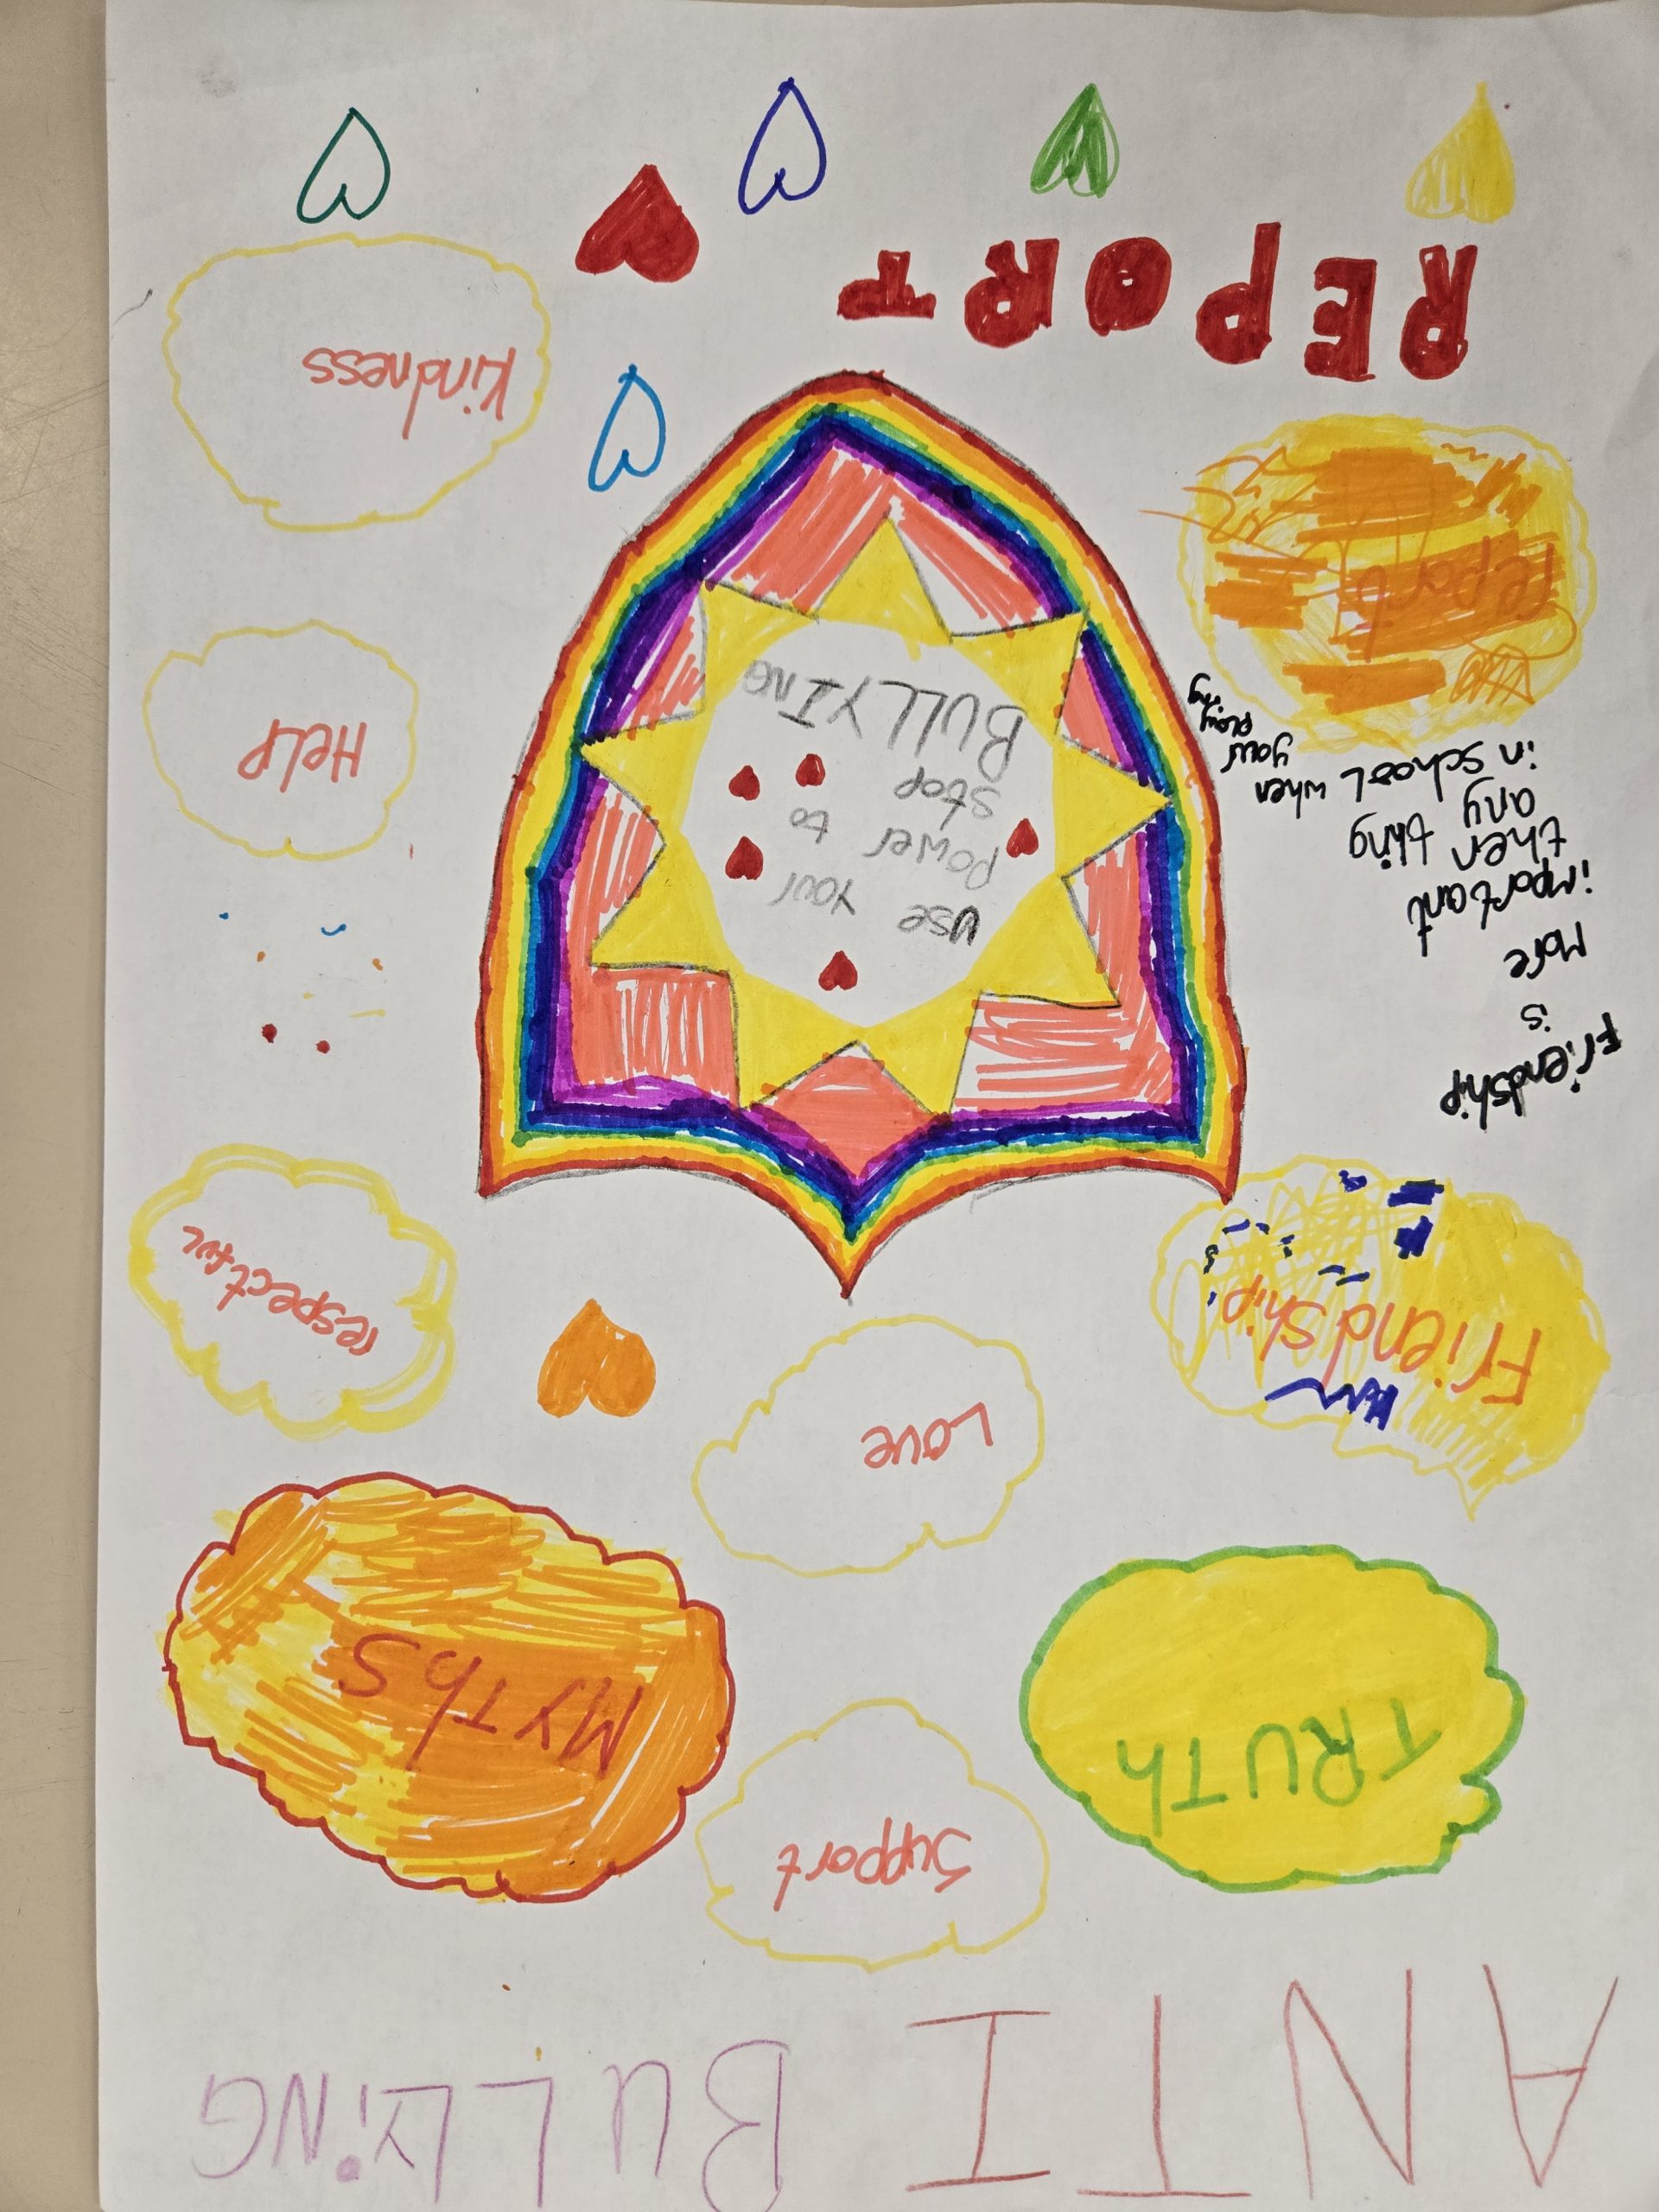 ANTI BULLYiNG
TRUTh
Support
MYThS
Friendship
Love
respectful
Friendship
is
More
important
then thing
any
in school when
your
play
ing
use your
power to
stop
BULLYING
HeLP
report
kindness
REPORT